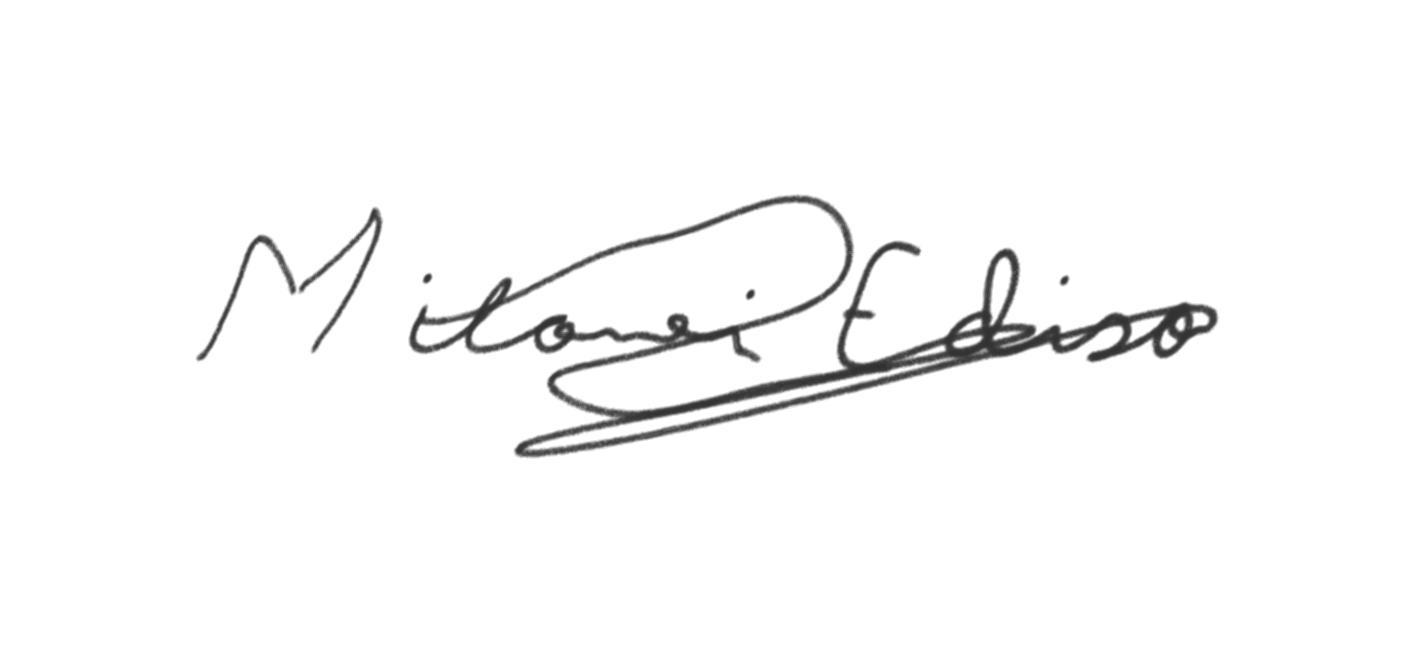 Mitonei Ediso